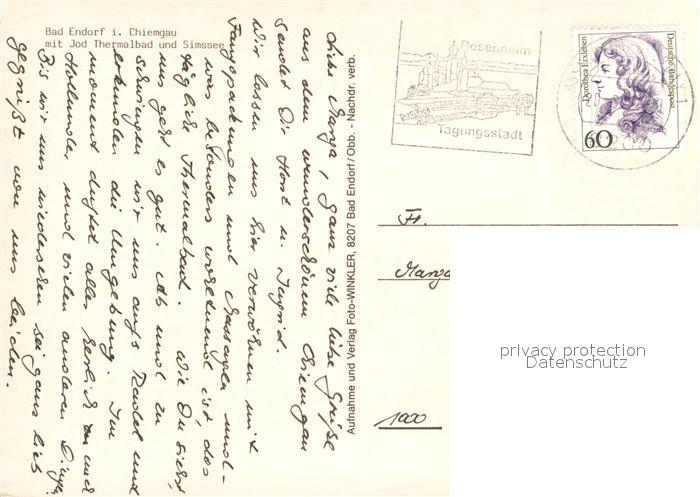 Bad Endorf i. Chiemgau
mit Jod Thermalbad und Simssee
Liebe Marga, ganz viele liebe Grüße
aus dem wunderschönen Chiemgau
sendet Dir Horst u. Ingrid.
Wir lassen uns hier verwöhnen mit
Fangopackungen und Massagen und
was besonders wohltuend ist, das
tägliche Thermalbad. Wie Du siehst,
uns geht es gut. Ab und zu
schwingen wir uns aufs Radel und
erkunden die Umgebung. Im
moment duftet alles herrlich an und
Hollunder und vielen anderen Dingen
Bis wir uns wiedersehen sei ganz lieb
gegrüßt von uns beiden.
Aufnahme und Verlag Foto-WINKLER, 8207 Bad Endorf/Obb. - Nachdr. verb.
Rosenheim
Tagungsstadt
Dorothea Erxleben
Deutsche Bundespost
60
Fr.
Marga
1000
privacy protection
Datenschutz